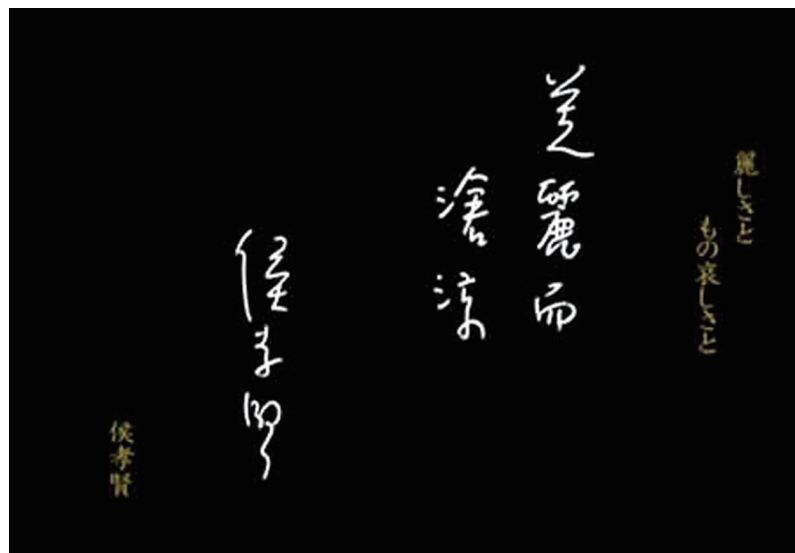 麗しさと
もの哀しさと
美麗而
滄涼
侯孝賢
侯孝賢